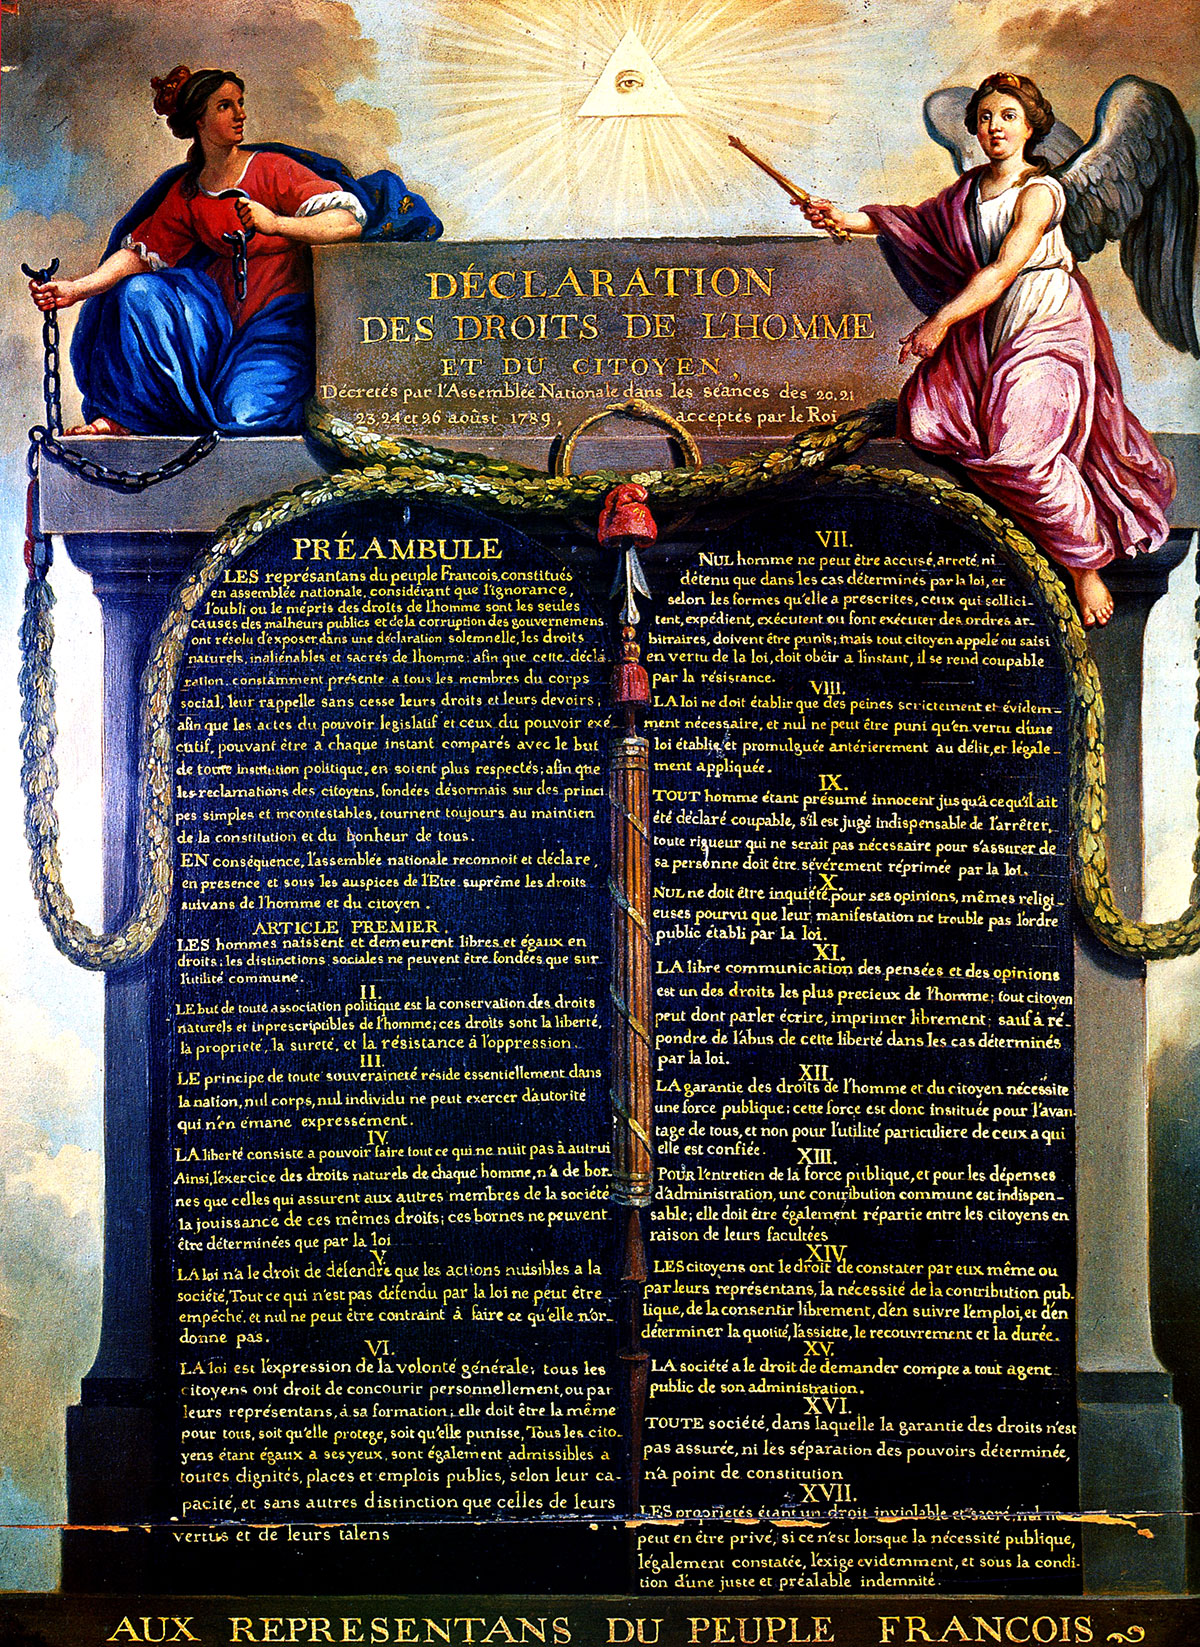 DÉCLARATION
DES DROITS DE L'HOMME
ET DU CITOYEN,
Décretés par l'Assemblée Nationale dans les séances des 20. 21
23, 24 et 26 aoûst 1789, acceptés par le Roi
PRÉAMBULE
LES représantans du peuple Francois, constitués
en assemblée nationale, considérant que l'ignorance,
l'oubli ou le mépris des droits de l'homme sont les seules
causes des malheurs publics et de la corruption des gouvernemens
ont résolu d'exposer, dans une déclaration solemnelle, les droits
naturels, inaliénables et sacrés de l'homme; afin que cette décla
ration, constamment présente a tous les membres du corps
social, leur rappelle sans cesse leurs droits et leurs devoirs;
afin que les actes du pouvoir législatif et ceux du pouvoir exé
cutif, pouvant être a chaque instant comparés avec le but
de toute institution politique, en soient plus respectés; afin que
les reclamations des citoyens, fondées désormais sur des princi
pes simples et incontestables, tournent toujours au maintien
de la constitution et du bonheur de tous.
EN conséquence, l'assemblée nationale reconnoit et déclare,
en presence et sous les auspices de l'Etre suprême les droits
suivans de l'homme et du citoyen.
ARTICLE PREMIER.
LES hommes naissent et demeurent libres et égaux en
droits; les distinctions sociales ne peuvent être fondées que sur
l'utilité commune.
II.
LE but de toute association politique est la conservation des droits
naturels et inprescriptibles de l'homme; ces droits sont la liberté,
la propriete, la sureté, et la résistance à l'oppression.
III.
LE principe de toute souveraineté réside essentiellement dans
la nation, nul corps, nul individu ne peut exercer d'autorité
qui n'en émane expressement.
IV.
LA liberté consiste a pouvoir faire tout ce qui ne nuit pas à autrui
Ainsi, l'exercice des droits naturels de chaque homme, n'a de bor-
nes que celles qui assurent aux autres membres de la société
la jouissance de ces mêmes droits; ces bornes ne peuvent
être déterminées que par la loi
V.
LA loi n'a le droit de défendre que les actions nuisibles a la
société, Tout ce qui n'est pas défendu par la loi ne peut être
empêché, et nul ne peut être contraint à faire ce qu'elle n'or-
donne pas.
VI.
LA loi est l'expression de la volonté générale; tous les
citoyens ont droit de concourir personnellement, ou par
leurs représentans, à sa formation; elle doit être la même
pour tous, soit qu'elle protege, soit qu'elle punisse, Tous les cito-
yens étant égaux a ses yeux, sont également admissibles a
toutes dignités, places et emplois publics, selon leur ca-
pacité, et sans autres distinction que celles de leurs
vertus et de leurs talens
VII.
NUL homme ne peut être accusé, arreté, ni
détenu que dans les cas déterminés par la loi, et
selon les formes qu'elle a prescrites, ceux qui sollici-
tent, expédient, exécutent ou font exécuter des ordres ar-
bitraires, doivent être punis; mais tout citoyen appelé ou saisi
en vertu de la loi, doit obéir a l'instant, il se rend coupable
par la résistance.
VIII.
LA loi ne doit établir que des peines strictement et évidem-
ment nécessaire, et nul ne peut être puni qu'en vertu d'une
loi établie et promulguée antérierement au délit, et légale-
ment appliquée.
IX.
TOUT homme étant présumé innocent jusqu'a ce qu'il ait
été déclaré coupable, s'il est jugé indispensable de l'arrêter,
toute rigueur qui ne serait pas nécessaire pour s'assurer de
sa personne doit être sévérement réprimée par la loi.
X.
NUL ne doit être inquiété pour ses opinions, mêmes religi-
euses pourvu que leur manifestation ne trouble pas l'ordre
public établi par la loi.
XI.
LA libre communication des pensées et des opinions
est un des droits les plus precieux de l'homme; tout citoyen
peut dont parler écrire, imprimer librement; sauf à ré-
pondre de l'abus de cette liberté dans les cas déterminés
par la loi.
XII.
LA garantie des droits de l'homme et du citoyen nécessite
une force publique; cette force est donc instituée pour l'avan-
tage de tous, et non pour l'utilité particuliere de ceux a qui
elle est confiée.
XIII.
POUR l'entretien de la force publique, et pour les dépenses
d'administration, une contribution commune est indispen-
sable; elle doit être également répartie entre les citoyens en
raison de leurs facultées
XIV.
LES citoyens ont le droit de constater par eux même ou
par leurs représentans, la nécessité de la contribution pub-
lique, de la consentir librement, d'en suivre l'emploi, et d'en
déterminer la quotité, l'assiette, le recouvrement et la durée.
XV.
LA société a le droit de demander compte a tout agent
public de son administration.
XVI.
TOUTE société, dans laquelle la garantie des droits n'est
pas assurée, ni les séparation des pouvoirs déterminée,
n'a point de constitution
XVII.
LES proprietés étant un droit inviolable et sacré, nul ne
peut en être privé, si ce n'est lorsque la nécessité publique,
légalement constatée, l'exige evidemment, et sous la condi-
tion d'une juste et préalable indemnité.
AUX REPRESENTANS DU PEUPLE FRANCOIS